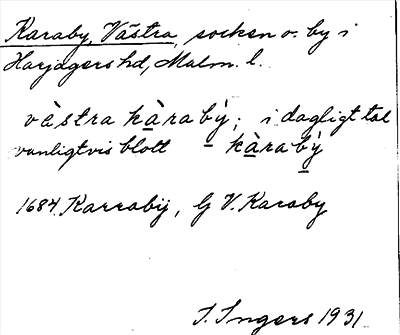 Karaby, Västra, socken o. by i
Harjagers hd, Malm. l.
vàstra kàrabẏ; i dagligt tal
vanligtvis blott - kàrabẏ
1684 Karrabÿ, G V. Karaby
I. Ingers 1931